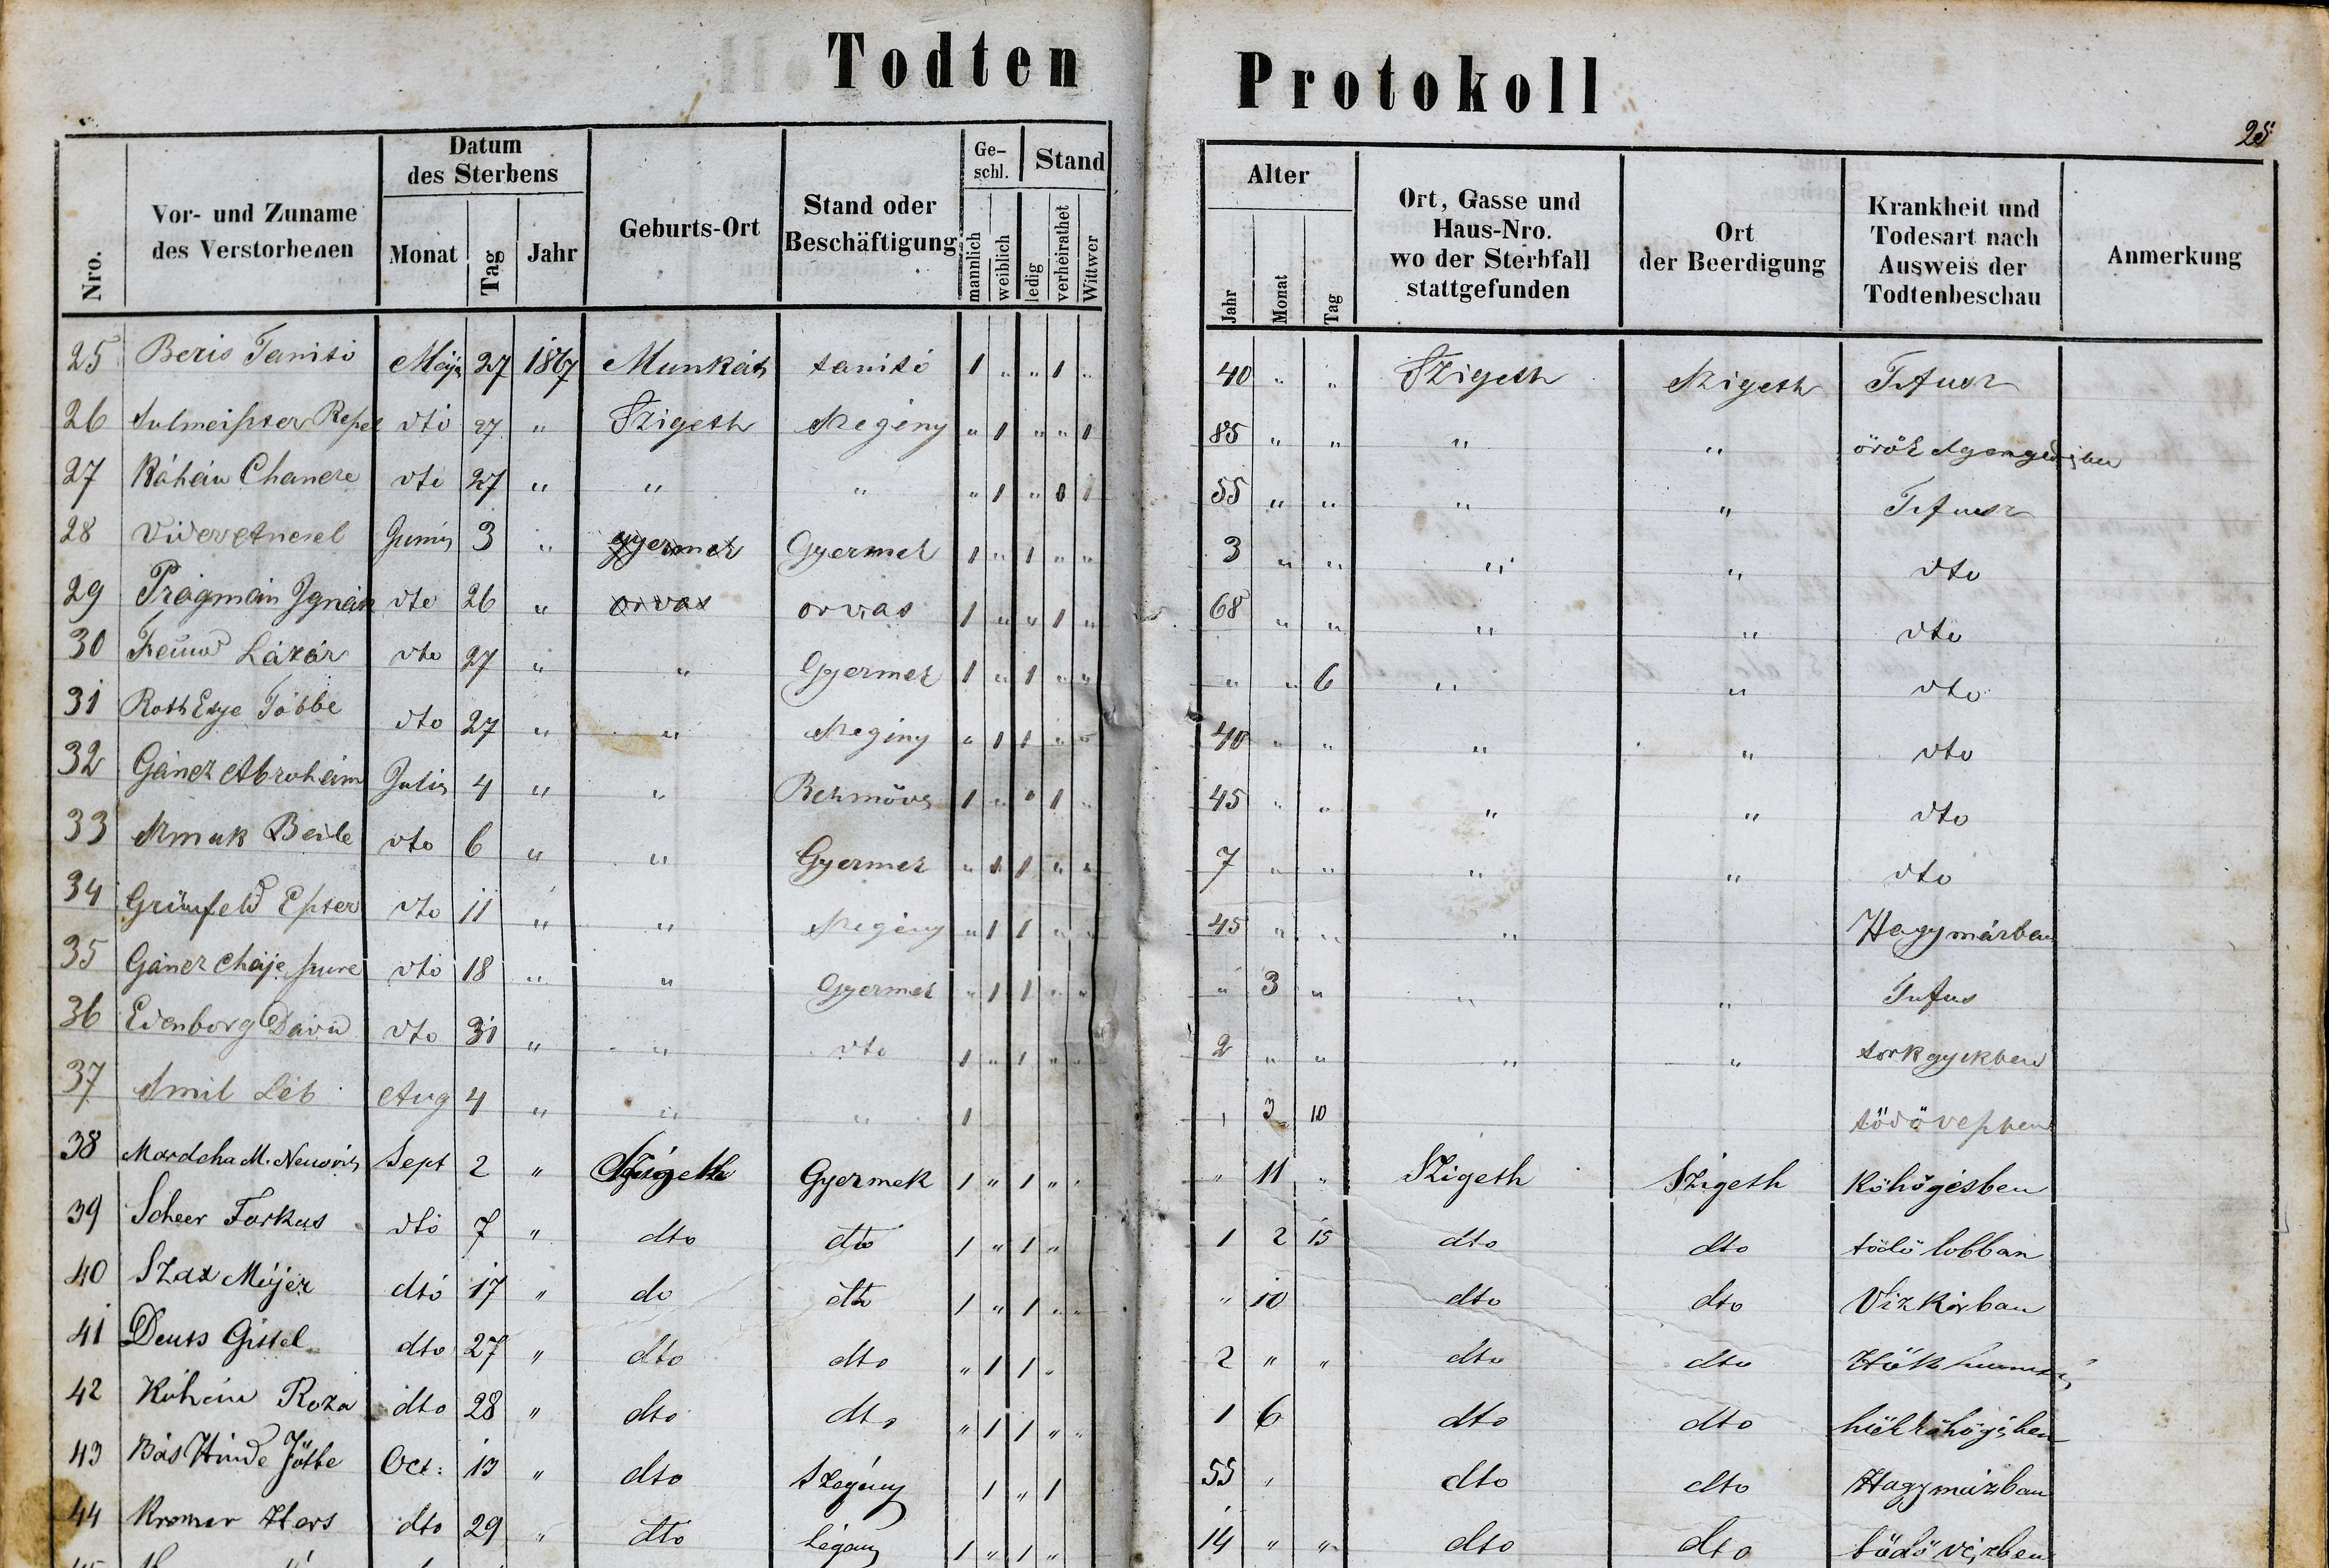 Todten Protokoll
25
Nro.
Vor- und Zuname
des Verstorbenen
Datum
des Sterbens
Monat
Tag
Jahr
Geburts-Ort
Stand oder
Beschäftigung
Ge-
schl.
männlich
weiblich
Stand
ledig
verheirathet
Wittwer
Alter
Jahr
Monat
Tag
Ort, Gasse und
Haus-Nro.
wo der Sterbfall
stattgefunden
Ort
der Beerdigung
Krankheit und
Todesart nach
Ausweis der
Todtenbeschau
Anmerkung
25 Beris Tanitó Maj 27 1867 Munkáts tanitó 1 " " 1 " 40 " " Szigeth Szigeth
26 27 " Szigeth Szegény " 1 " " 1 85 " " " " örök
27 Káhán Chancze dto 27 " " " " 1 " 55 " " " "
28 Juni 3 " gyermek Gyermek 1 " 1 " " 3 " " " " dto
29 Prágmán Ignátz dto 26 " orvas orvas 1 " " 1 " 68 " " " " dto
30 Lázár dto 27 " " Gyermek 1 " 1 " " " " 6 " " dto
31 Roth dto 27 " " Szegény " 1 1 " " 40 " " " " dto
32 Gáncz Abrohám Julis 4 " " 1 " " 1 " 45 " " " " dto
33 Beile dto 6 " " Gyermek " 1 1 " " 7 " " " " dto
34 Grünfeld Eszter dto 11 " " Szegény " 1 1 " " 45 " " " Hagymázban
35 Gáncz Cháje dto 18 " " Gyermek " 1 1 " " " 3 " " " Tufus
36 Edenborg David dto 31 " " dto 1 " 1 " " 2 " " " " torkgyikben
37 Smil Léb Aug 4 " " " 1 " 3 10
38 Mardcha M. Sept 2 " Szigeth Gyermek 1 " 1 " " " 11 " Szigeth Szigeth Köhögésben
39 Scheer Farkas dto 7 " dto dto 1 " 1 " 1 2 15 dto dto tödö lobban
40 Szax Mejer dto 17 " do dto 1 " 1 " " " 10 dto dto Viz Korban
41 Deuts Gittel dto 27 " dto dto " 1 1 " 2 " " dto dto
42 Kohein Roza dto 28 " dto dto " 1 1 " " 1 6 dto dto
43 Bás Hinde Oct: 13 " dto Szegény 1 " 1 55 " dto dto Hagymázban
44 Kremer Hers dto 29 " dto Legény 1 " 1 " 14 " " dto dto